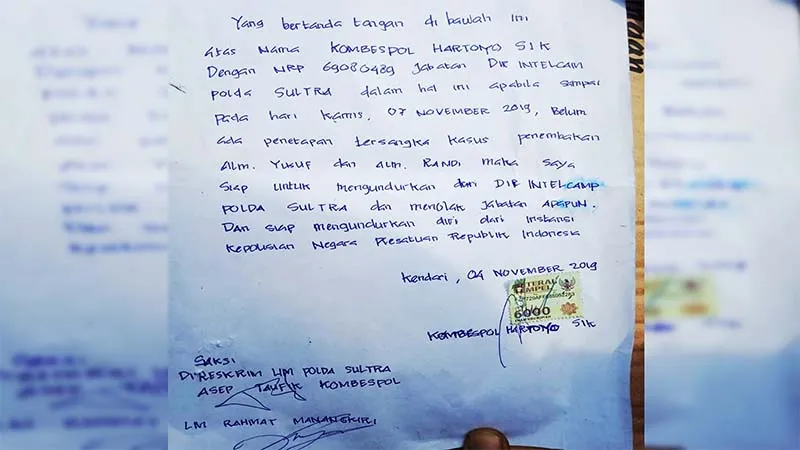 Yang bertanda tangan di bawah ini
atas Nama KOMBESPOL HARTOYO SIK
Dengan NRP 69080489 Jabatan DIR INTELCAM
POLDA SULTRA dalam hal ini apabila sampai
pada hari Kamis, 07 NOVEMBER 2019, Belum
ada penetapan tersangka kasus penembakan
Alm. YUSUF dan Alm. RANDI maka saya
siap untuk mengundurkan dari DIR INTELCAMP
POLDA SULTRA dan menolak Jabatan APAPUN.
Dan siap mengundurkan diri dari instansi
Kepolisian Negara Kesatuan Republik Indonesia
Kendari, 04 NOVEMBER 2019
METERAI
TEMPEL
6000
KOMBESPOL HARTOYO SIK
SAKSI
DIRESKRIM UM POLDA SULTRA
ASEP TAUFIK KOMBESPOL
LM RAHMAT MANANGKIRI